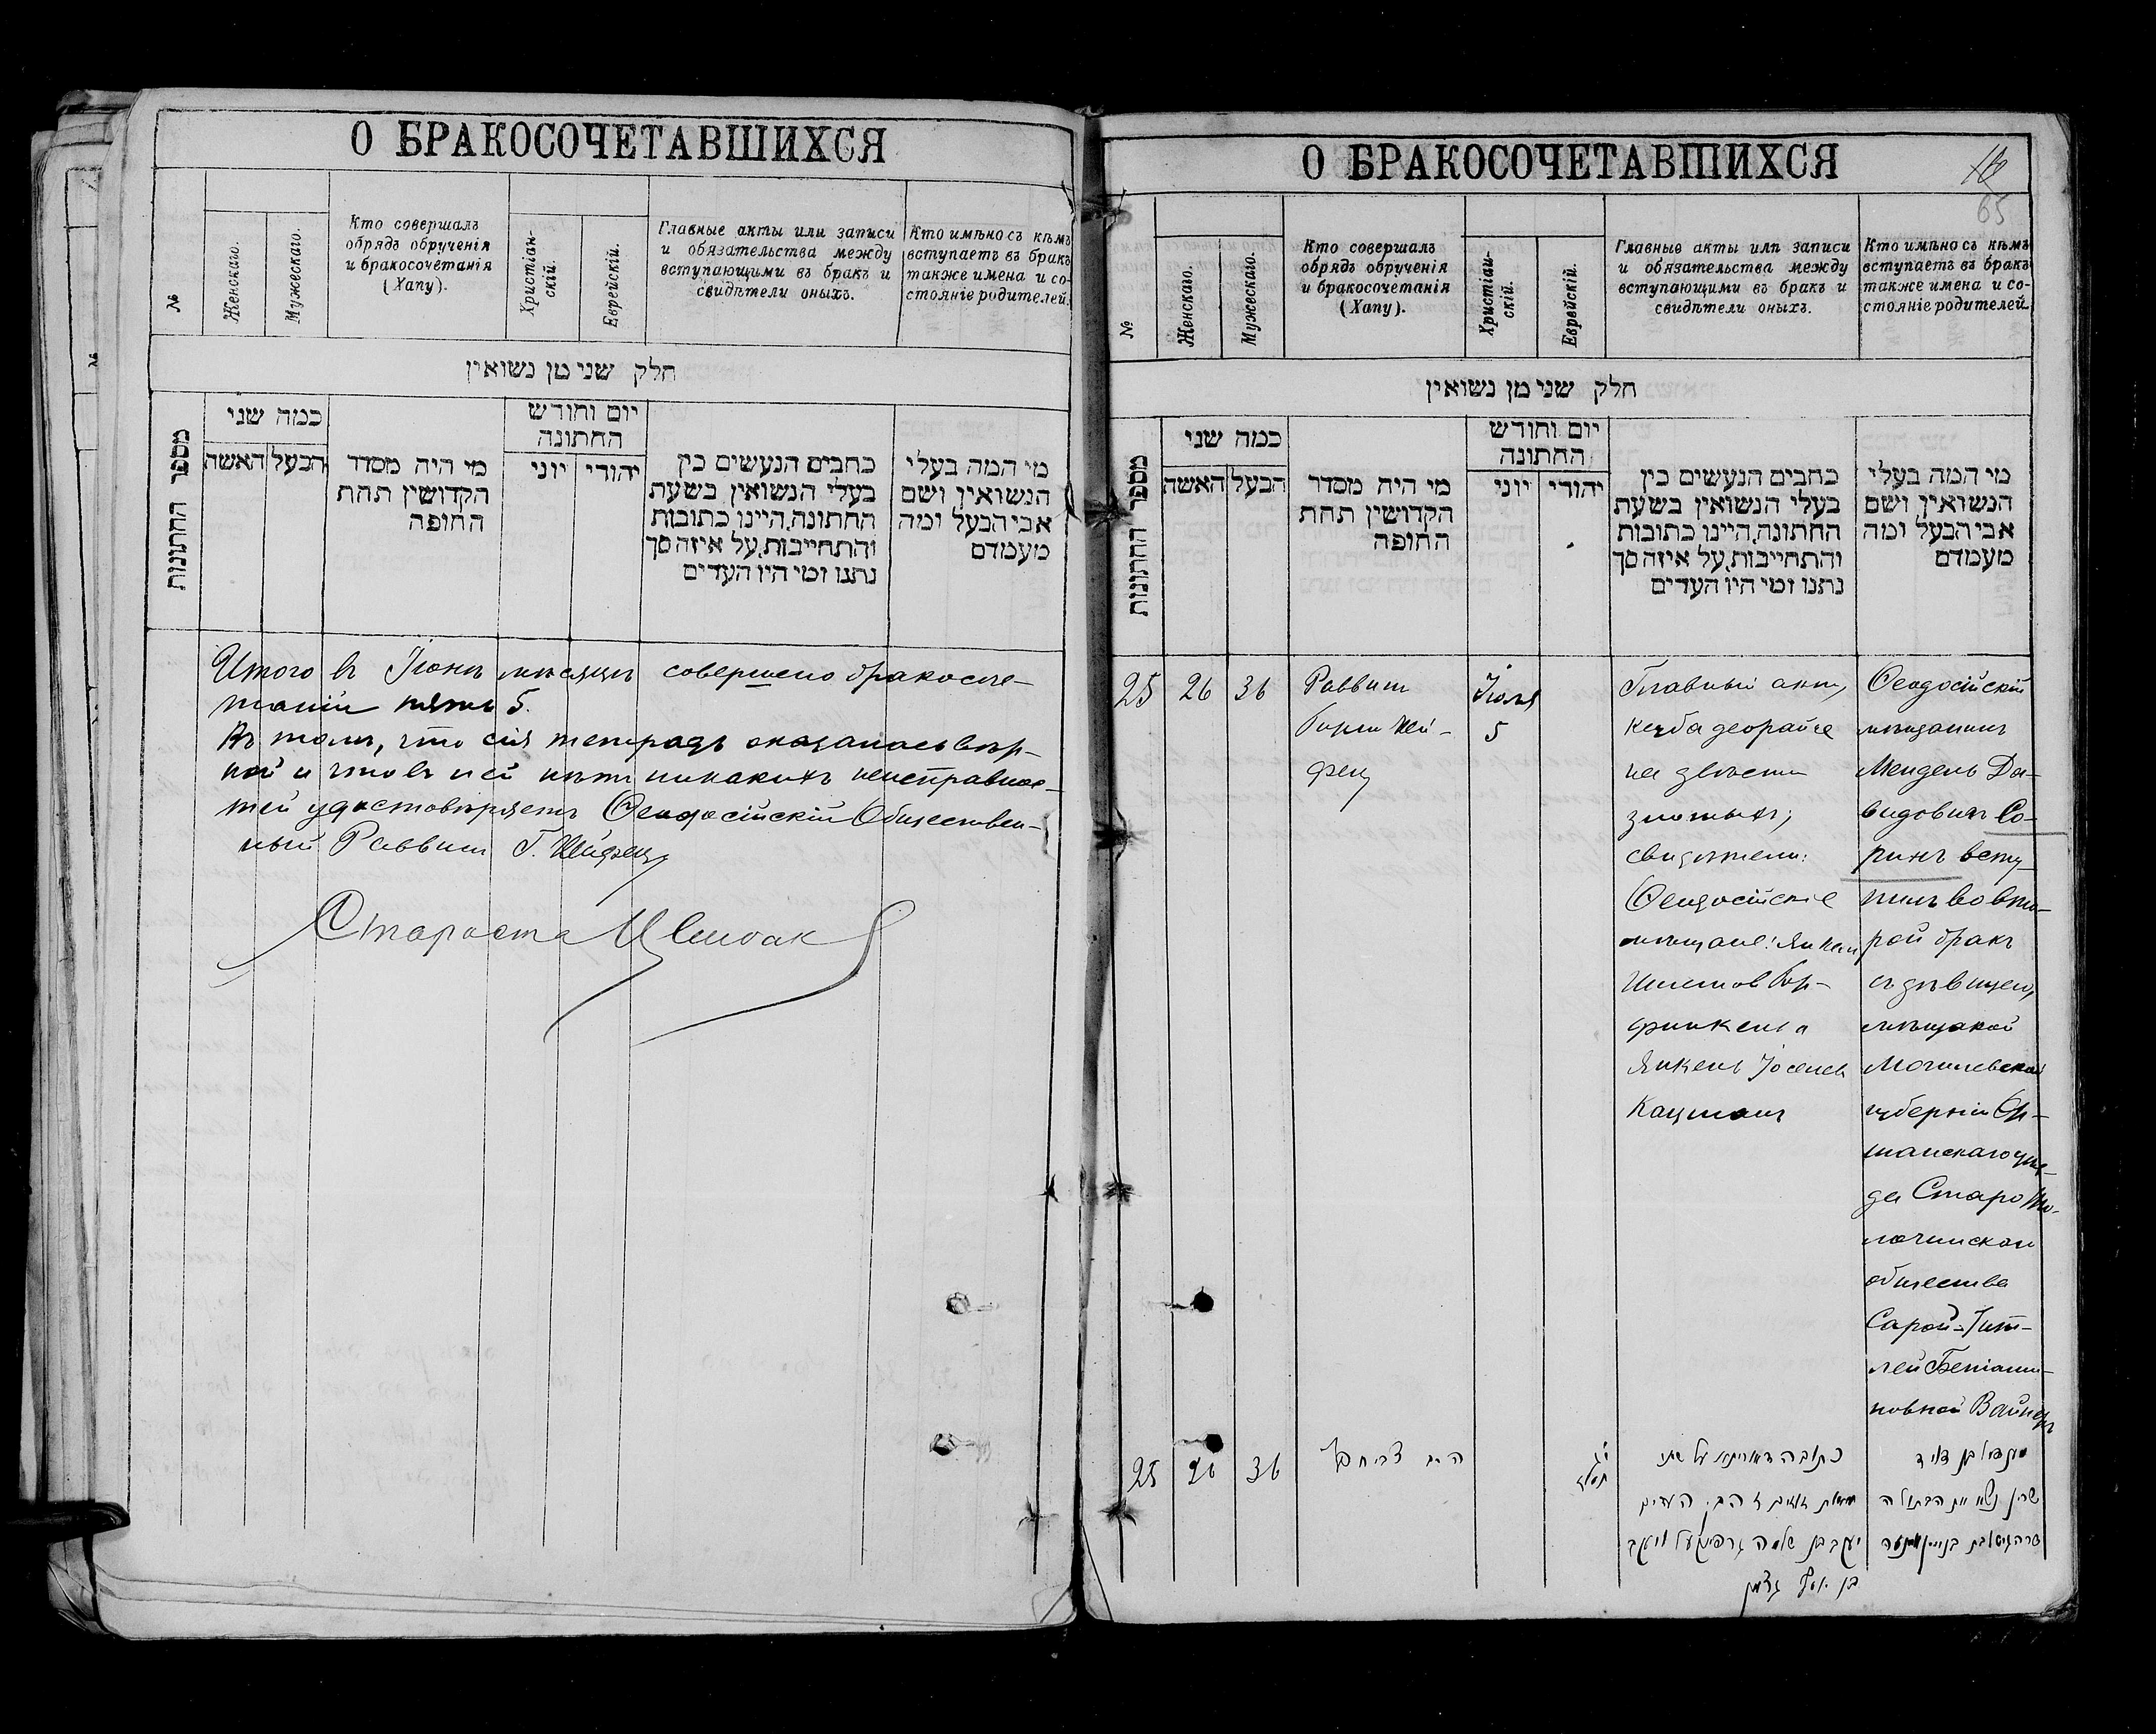 О БРАКОСОЧЕТАВШИХСЯ
№
Женскаго.
Мужескаго.
Кто совершалъ
обрядъ обрученія
и бракосочетанія
(Хапу).
Христіан-
скій.
Еврейскій.
Главные акты или записи
и обязательства между
вступающими въ бракъ и
свидѣтели оныхъ.
Кто имѣно съ кѣмъ
вступаетъ въ бракъ
также имена и со-
стояніе родителей.
חלק שני מן נשואין
מספר החתונות
כמה שני
האשה
הבעל
מי היה מסדר
הקדושין תחת
החופה
יום וחודש
החתונה
יוני
יהודי
כחבים הנעשים בין
בעלי הנשואין בשעת
החתונה.היינו כתובות
והתחייבות.על איזה סך
נתנו ומי היו העדים
מי המה בעלי
הנשואין ושם
אבי הבעל ומה
מעמדם
Итого въ Іюнѣ мѣсяцѣ совершено бракосоче-
таній пять 5.
Въ томъ, что сія тетрадь оказалась вѣр-
ной и что въ ней нѣтъ никакихъ неисправнос-
тей удостовѣряетъ Ѳеодосійскій Обществен-
ный Раввинъ Г.
Староста
О БРАКОСОЧЕТАВШИХСЯ
65
№
Женскаго.
Мужескаго.
Кто совершалъ
обрядъ обрученія
и бракосочетанія
(Хапу).
Христіан-
скій.
Еврейскій.
Главные акты или записи
и обязательства между
вступающими въ бракъ и
свидѣтели оныхъ.
Кто имѣно съ кѣмъ
вступаетъ въ бракъ
также имена и со-
стояніе родителей.
חלק שני מן נשואין
מספר החתונות
כמה שני
האשה
הבעל
מי היה מסדר
הקדושין תחת
החופה
יום וחודש
החתונה
יוני
יהודי
כחבים הנעשים בין
בעלי הנשואין בשעת
החתונה.היינו כתובות
והתחייבות.על איזה סך
נתנו ומי היו העדים
מי המה בעלי
הנשואין ושם
אבי הבעל ומה
מעמדם
25
26
36
Раввинъ
Іюля
5
Главный актъ,
кесуба деорайсе
на двѣсти
злотыхъ;
свидѣтели:
Ѳеодосійскіе
мѣщане:
Янкель Іоселев
Кацманъ
Ѳеодосійскій
мѣщанинъ
Мендель Да-
видовичъ Со-
ринъ всту-
пилъ во вто-
рой бракъ
съ дѣвицею,
мѣщанкой
Могилевской
губерніи Ор-
шанскаго уѣз-
да Старо То-
лочинскаго
общества
Сарой-Гит-
лей Беніами-
новной
25
26
36
הרב
כתובה דאורייתא על שתי
מאות זוזים זהב. העדים
יעקב בן שלמה
בן יוסף
מענדיל בן דוד
שרין נשא את הבתולה